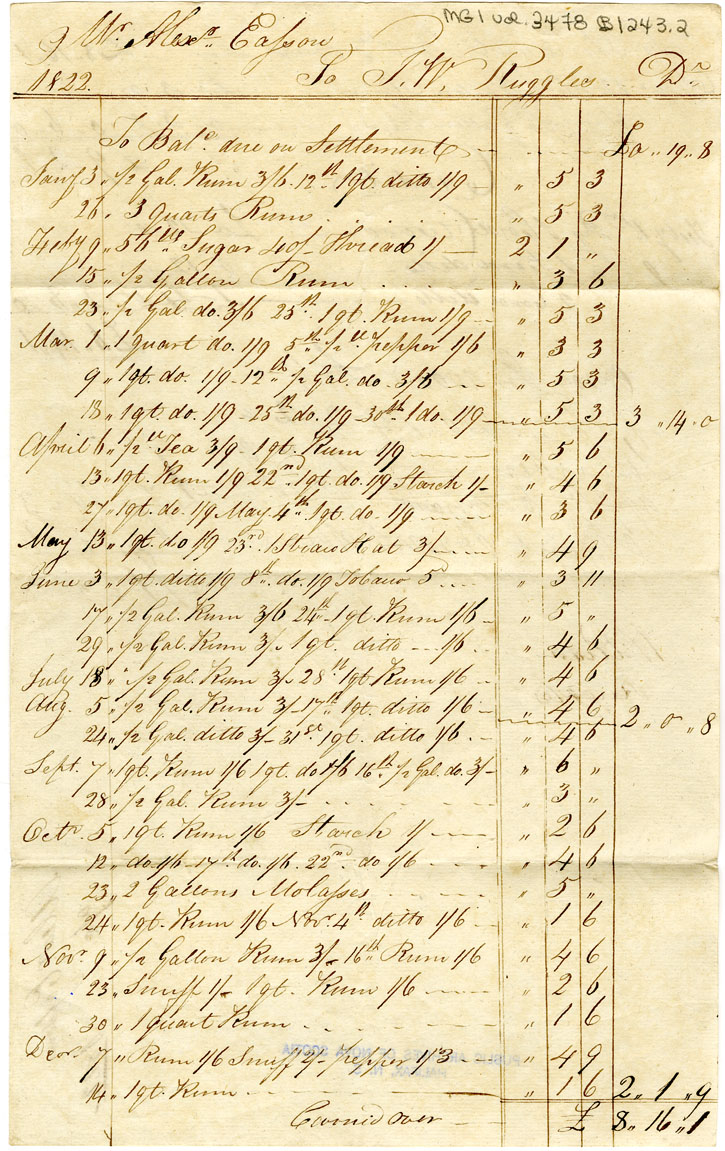 MG 1 Vol. 3478 B1243.2
Mr. Alexr. Easson
1822. To T. W. Ruggles Dr.
To Balce. due on Settlement £0 " 19 " 8
Jany 3 " 1/2 Gal. Rum 3/6. 12th 1 qt. ditto 1/9 " 5 3
26 " 3 quarts Rum " 5 3
Feby 9 " 56 lbs Sugar 40/- Thread 1/- 2 1 "
15 " 1/2 Gallon Rum " 3 6
23 " 1/2 Gal. do. 3/6 25th 1 qt. Rum 1/9 " 5 3
Mar. 1 " 1 quart do. 1/9 5th 1/2 lb Pepper 1/6 " 3 3
9 " 1 qt. do. 1/9 - 12th 1/2 Gal. do. 3/6 " 5 3
18 " 1 qt. do. 1/9 - 25th do. 1/9 - 30th 1 do. 1/9 " 5 3 3 " 14 " 0
April 6 " 1/2 lb Tea 3/9 - 1 qt. Rum 1/9 " 5 6
13 " 1 qt. Rum 1/9 22nd 1 qt. do. 1/9 Starch 1/- " 4 6
27 " 1 qt. do. 1/9 May 4th 1 qt. do. 1/9 " 3 6
May 13 " 1 qt. do 1/9 23rd 1 Straw Hat 3/- " 4 9
June 3 " 1 qt. ditto 1/9 8th do. 1/9 Tobacco 5d " 3 11
17 " 1/2 Gal. Rum 3/6 24th 1 qt. Rum 1/6 " 5 "
29 " 1/2 Gal. Rum 3/- 1 qt. ditto 1/6 " 4 6
July 18 " 1/2 Gal. Rum 3/- 28th 1 qt Rum 1/6 " 4 6
Aug. 5 " 1/2 Gal. Rum 3/- 17th 1 qt. ditto 1/6 " 4 6 2 " 0 " 8
24 " 1/2 Gal. ditto 3/- 31st 1 qt. ditto 1/6 " 4 6
Sept. 7 " 1 qt. Rum 1/6 1 qt. do 1/6 16th 1/2 Gal. do. 3/- " 6 "
28 " 1/2 Gal. Rum 3/- " 3 "
Octr. 5 " 1 qt. Rum 1/6 Starch 1/- " 2 6
12 " do. 1/6 - 17th do. 1/6. 22nd do 1/6 " 4 6
23 " 2 Gallons Molasses " 5 "
24 " 1 qt. Rum 1/6 Novr. 4th ditto 1/6 " 1 6
Novr. 9 " 1/2 Gallon Rum 3/- 16th Rum 1/6 " 4 6
23 " Snuff 1/- 1 qt. Rum 1/6 " 2 6
30 " 1 quart Rum " 1 6
Decr. 7 " Rum 1/6 Snuff 2/- Pepper 1/3 " 4 9
14 " 1 qt. Rum " 1 6 2 " 1 " 9
Carried over £ 8 " 16 " 1